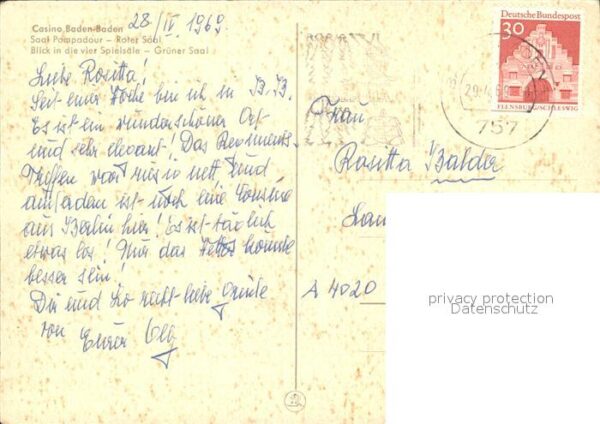 Casino Baden-Baden
Saal Pompadour – Roter Saal
Blick in die vier Spielsäle – Grüner Saal
28/IV. 1969
Liebe Rositta!
Seit einer Woche bin ich in B.B.
Es ist ein wunderschöner Ort
und sehr elegant! Das
Treffen war nett und
außerdem ist noch eine Cousine
aus Berlin hier! Es ist täglich
etwas los! Nur das Wetter könnte
besser sein!
Dir und Leo recht liebe Grüße
von Eurer Olly
Deutsche Bundespost
30
FLENSBURG/SCHLESWIG
29.4.69
757
Frau
Rositta Balder
A 4020
privacy protection
Datenschutz